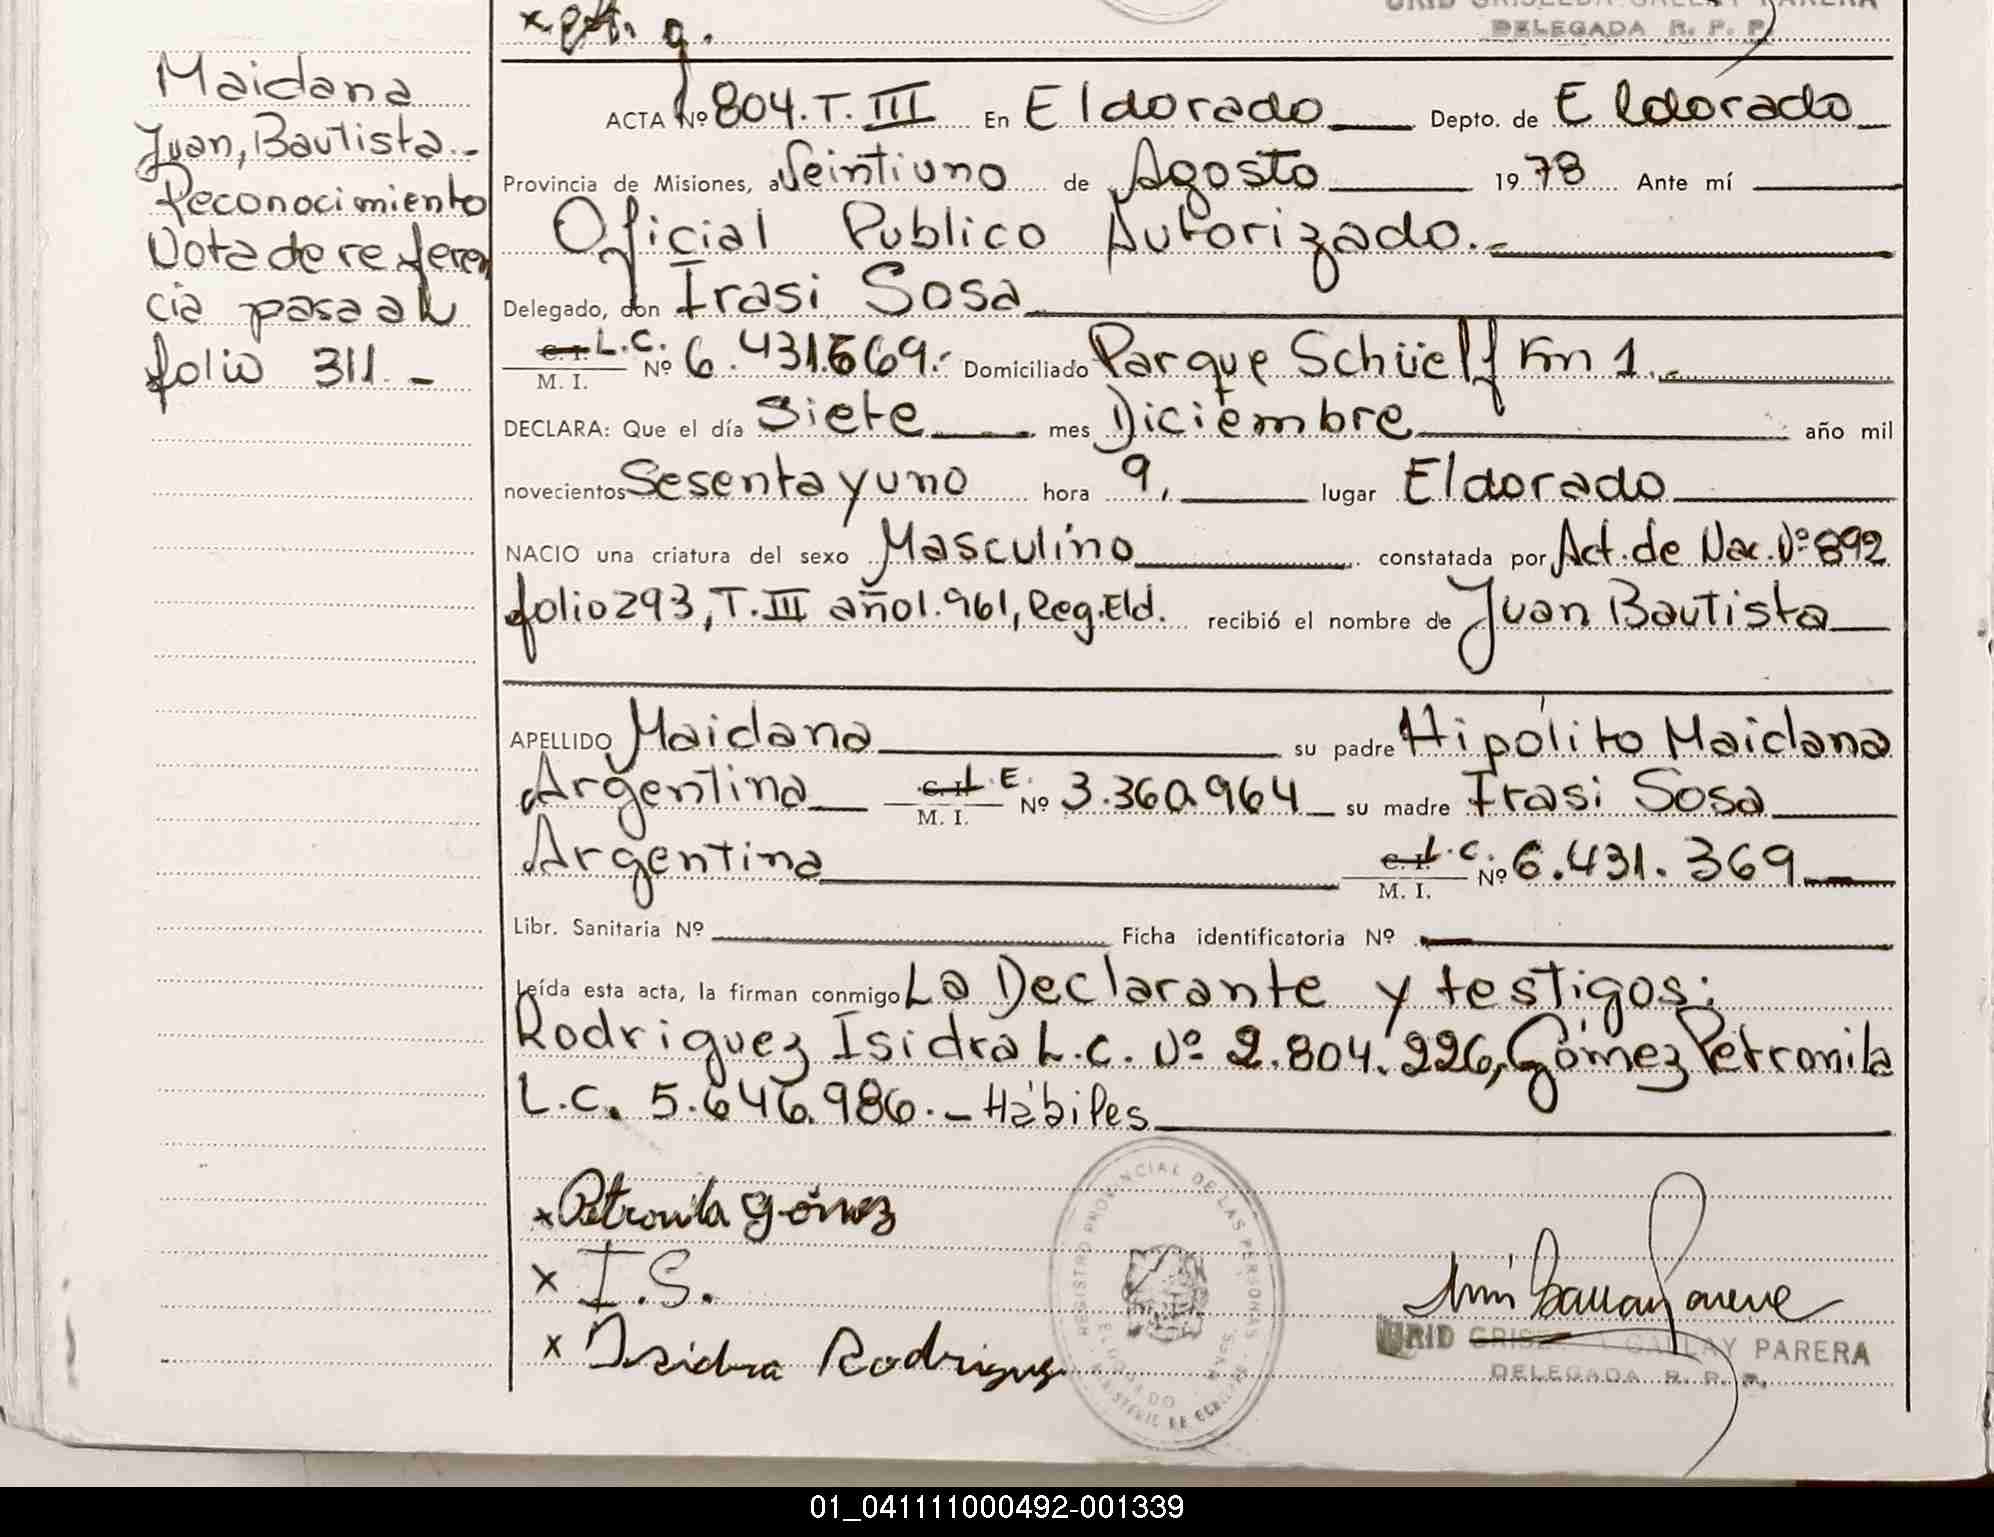 URID GRISELDA GALLAY PARERA
DELEGADA R. P. P.
Maidana
Juan, Bautista.-
Reconocimiento
Nota de referen
cia pasa al
folio 311.-
ACTA Nº 804.T.III En Eldorado Depto. de Eldorado
Provincia de Misiones, a Veintiuno de Agosto 1978 Ante mí
Oficial Publico Autorizado.-
Delegado, don Irasi Sosa
C. I. L.C. M. I. Nº 6.431.569.- Domiciliado Parque Schüelf Km 1.-
DECLARA: Que el día Siete mes Diciembre año mil
novecientos Sesenta y uno hora 9, lugar Eldorado
NACIO una criatura del sexo Masculino constatada por Act. de Nac. Nº 892
folio 293, T.III año 1.961, Reg. Eld. recibió el nombre de Juan Bautista
APELLIDO Maidana su padre Hipólito Maidana
Argentina C. I. L.E. M. I. Nº 3.360.964 su madre Irasi Sosa
Argentina C. I. L.C. M. I. Nº 6.431.369
Libr. Sanitaria Nº Ficha identificatoria Nº
Leída esta acta, la firman conmigo La Declarante y testigos:
Rodriguez Isidra L.C. Nº 2.804.226, Gómez Petronila
L.C. 5.646.986.- Hábiles
x Petronila Gómez
x I.S.
x Isidra Rodriguez
REGISTRO PROVINCIAL DE LAS PERSONAS
URID GRISELDA GALLAY PARERA
DELEGADA R. P. P.
01_041111000492-001339